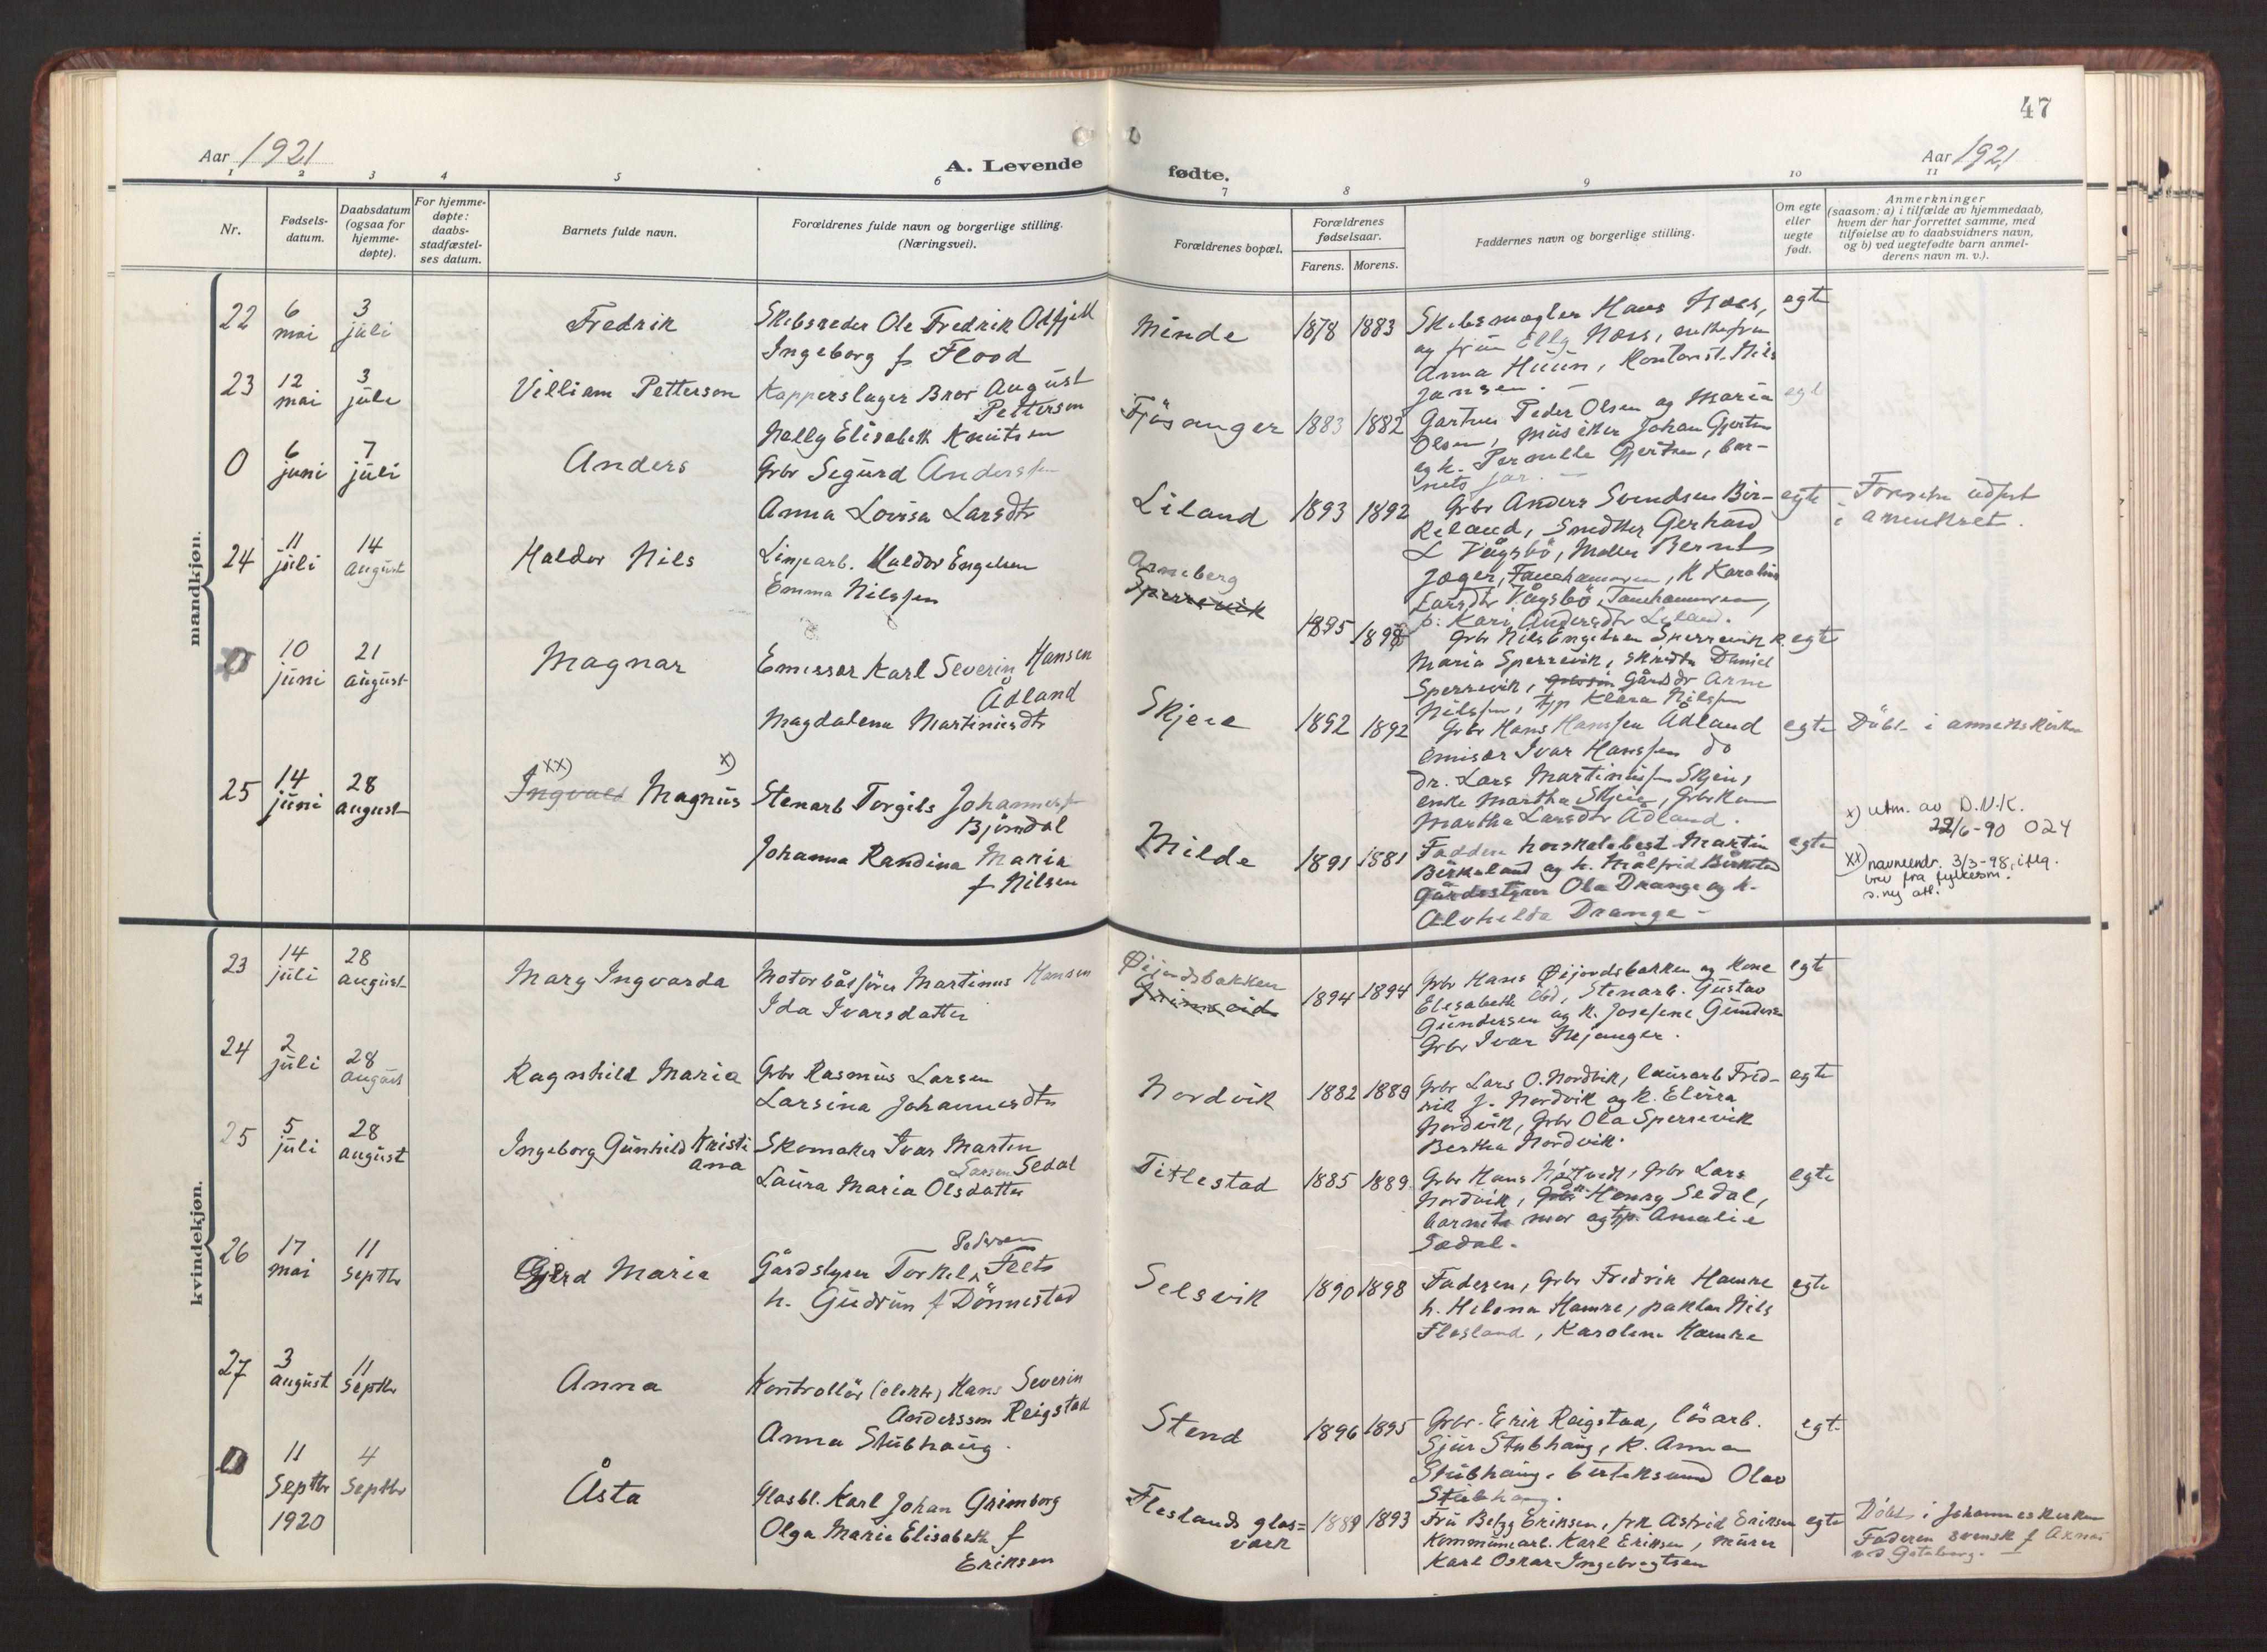 47
Aar 1921
A. Levende
fødte.
Aar 1921
1 2 3 4 5 6
7 8 9 10 11
Nr.
Fødsels-
datum.
Daabsdatum
(ogsaa for
hjemme-
døpte).
For hjemme-
døpte:
daabs-
stadfæstel-
ses datum.
Barnets fulde navn.
Forældrenes fulde navn og borgerlige stilling.
(Næringsvei).
Forældrenes bopæl.
Forældrenes
fødselsaar.
Farens. Morens.
Faddernes navn og borgerlige stilling.
Om egte
eller
uegte
født.
Anmerkninger
(saasom: a) i tilfælde av hjemmedaab,
hvem der har forrettet samme, med
tilføielse av to daabsvidners navn,
og b) ved uegtefødte barn anmel-
derens navn m. v.).
mandkjøn.
22
6
mai
3
juli
Fredrik
Skibsreder Ole Fredrik Odfjell
Ingeborg f. Flood
Minde
1878 1883
Skibsmægler Hans Næss,
og frue Elly Næss, enkefru
Anna Huun, Kontorist Nils
Jansen.
egte
23
12
mai
3
juli
Villiam Petterson
Kopperslager Bror August
Petterson
Nelly Elisabeth Knutsen
Fjösanger
1883 1882
Gartner Peder Olsen og Maria
Olsen, musiker Johan Gjertsen
og h. Pernille Gjertsen, bar-
nets far.
egte
0
6
juni
7
juli
Anders
Grbr Sigurd Anderssen
Anna Lovisa Larsdtr
Liland
1893 1892
Grbr Anders Svendsen Bir-
keland, Smed Gerhard
L Vågsbö, Möller Bernt
Jæger, Fanehammeren, K Karolina
Larsdtr Vågsbö, Fanehammeren,
p. Kari Andersdtr Lyland.
egte
24
11
juli
14
august
Haldor Nils
Linjearb. Haldor Engelsen
Emma Nilssen
Arneberg
Sperrevik
1895 1898
Grbr Nils Engelsen Sperrevik k.
Maria Sperrevik, skrædder Daniel
Sperrevik, Gårdbr Arne
Nilssen, tjp Klara Nilssen
egte
0
10
juni
21
august
Magnar
Emissær Karl Severin Hansen
Ådland
Magdalena Martinusdtr
Skjeie
1892 1892
Grbr Hans Hanssen Ådland
emisær Ivar Hanssen do
dr. Lars Martinussen Skjeie,
enke Martha Skjeie, Grbrkone
Martha Larsdtr Ådland.
egte
Döbt i annetskirken
25
14
juni
28
august
xx) x)
Ingvald Magnus
Stenarb Torgils Johannessen
Björndal
Johanna Randina Maria
f Nilsen
Milde
1891 1881
Fadderne herskabsbest. Martin
Birkeland og h. Målfrid Birkeland
Gårdsstyrer Ola Drange og h.
Alvhilda Drange -
egte
x) utm. av D.N.K.
22/6-90 024
xx) navneendr. 3/3-98, iflg.
brev fra fylkesm.
s. ny att.
kvindekjøn.
23
14
juli
28
august
Mary Ingvarda
Motorbåtförer Martinus Hansen
Ida Ivarsdatter
Öijordsbakken
Grimseid
1894 1894
Grbr Hans Öijordsbakken og Kone
Elisabeth ibd, Stenarb. Gustav
Gundersen og K. Josefine Gundersen
Grbr Ivar Mjanger.
egte
24
2
juli
28
august
Ragnhild Maria
Grbr Rasmus Larsen
Larsina Johannesdtr
Nordvik
1882 1889
Grbr Lars O. Nordvik, lausarb Fred-
rik J. Nordvik og K. Elvira
Nordvik, Grbr Ola Sperrevik
Bertha Nordvik.
egte
25
5
juli
28
august
Ingeborg Gunhild Kristi
ana
Skomaker Ivar Martin
Larsen Sedal
Laura Maria Olsdatter
Titlestad
1885 1889
Grbr Hans Nöttveit, Grbr Lars
Nordvik, Henry Sedal,
barnets mor og tjp. Amalie
Sædal.
egte
26
17
mai
11
Septbr
Gjerd Maria
Gårdstyrer Torkel Pedersen Flets
h. Gudrun f Dönnestad
Selsvik
1890 1898
Faderen, Grbr Fredrik Hamre
h. Helena Hamre, pakter Nils
Flesland, Karoline Hamre
egte
27
3
august
11
Septbr
Anna
Kontrollör (elektr) Hans Severin
Anderssen Reigstad
Anna Stubhaug.
Stend
1896 1895
Grbr. Erik Reigstad, lösarb.
Sjur Stubhaug, K. Anna
Stubhaug, Olav
Stubhaug.
egte
0
11
Septbr
1920
4
Septbr
Åsta
Glasbl. Karl Johan Grimborg
Olga Marie Elisabeth f
Eriksen
Fleslands glas=
værk
1889 1893
Fru Betzy Eriksen, frk Astrid Eriksen
Kommunearb. Karl Eriksen, murer
Karl Oskar Ingebregtsen
egte
Döbt i Johanneskirken
Faderen svensk f
ved Göteborg.